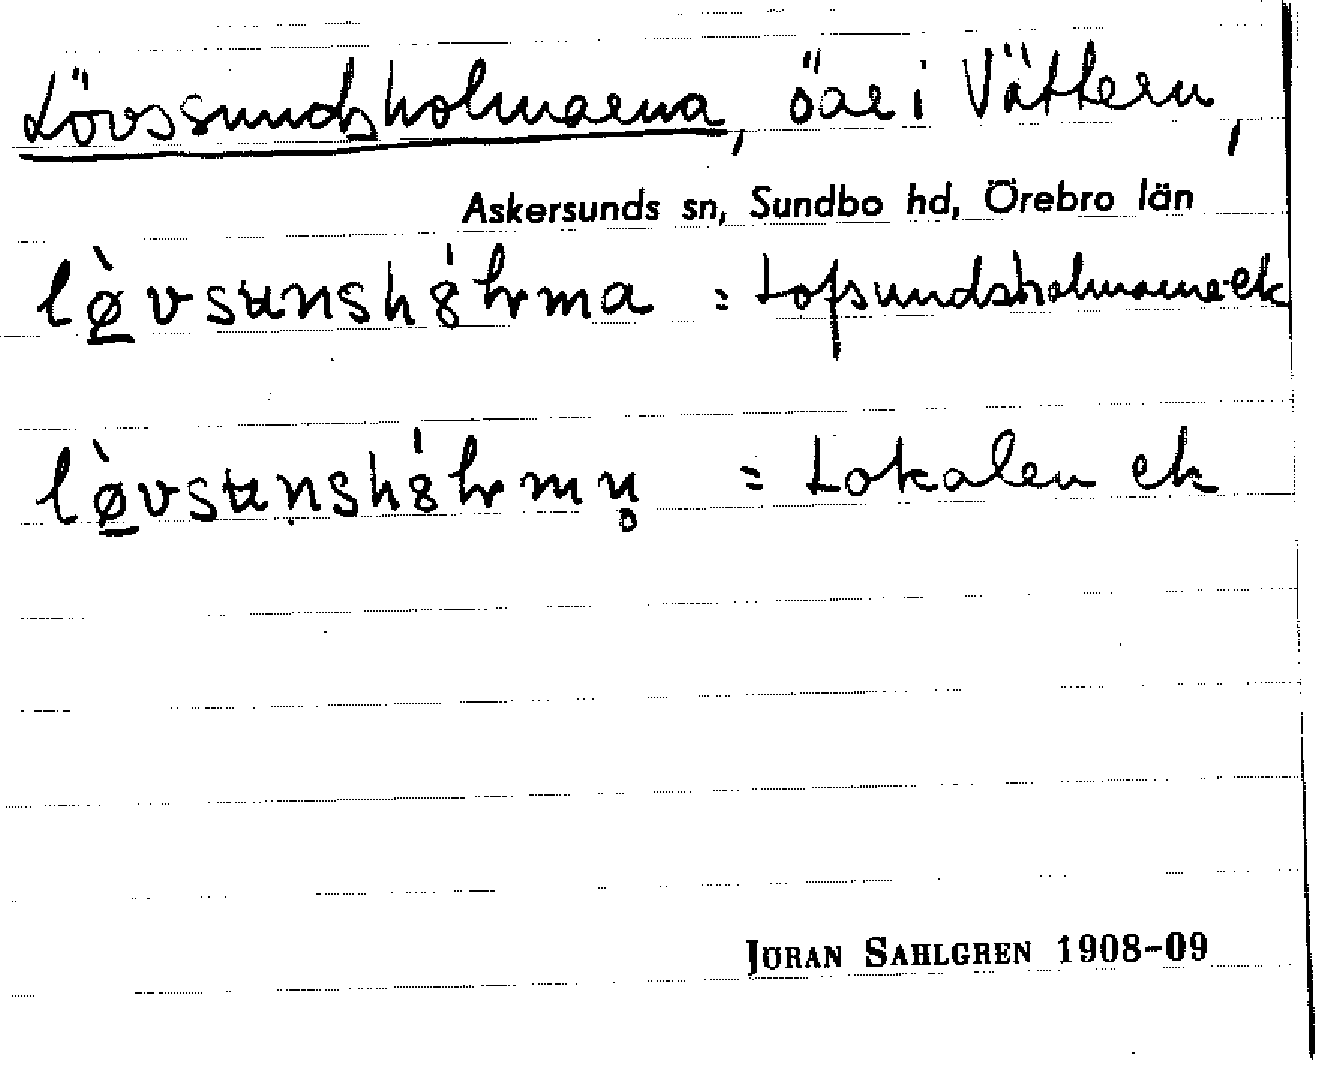 Lövssundsholmarna, öar i Vättern,
Askersunds sn, Sundbo hd, Örebro län
lø̀vsunshȯ́lma = Lofsundsholmarne ek
lø̀vsunshȯ́lmn̥ = Lokalen ek
JÖRAN SAHLGREN 1908-09